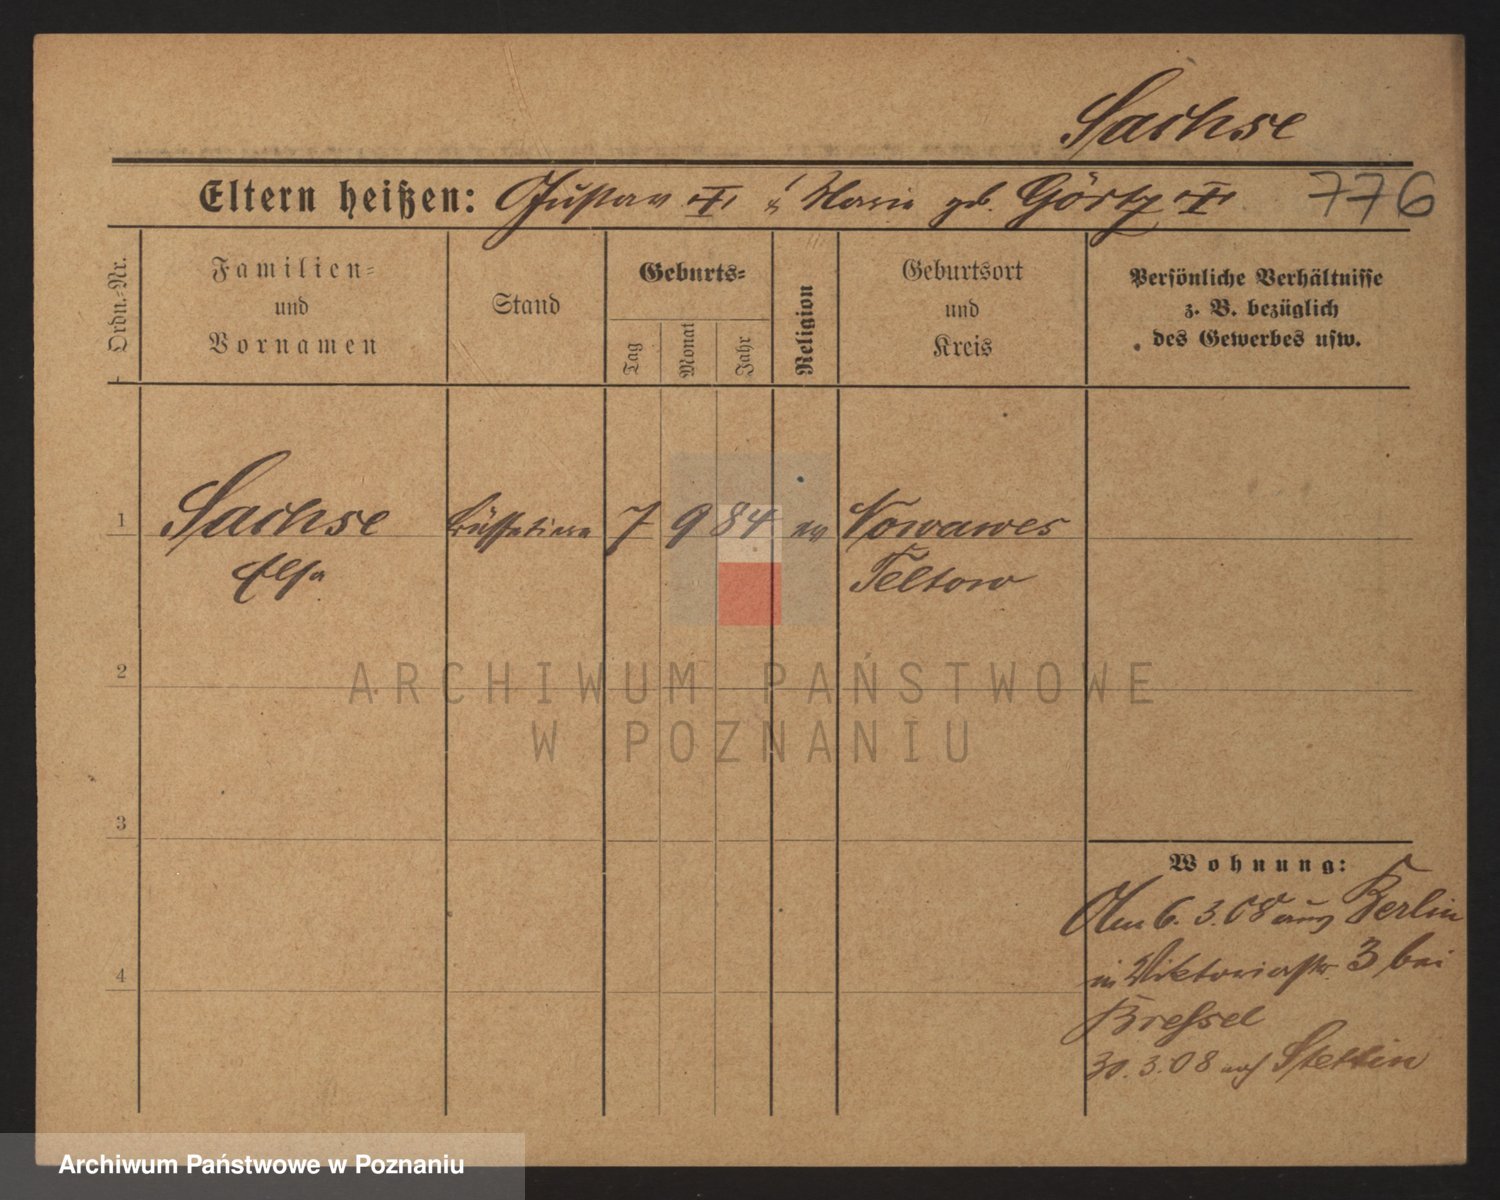 Sachse
Eltern heißen: Gustav † u. Marie geb. Görtz † 776
Ordn.-Nr.
Familien-
und
Vornamen
Stand
Geburts-
Tag
Monat
Jahr
Religion
Geburtsort
und
Kreis
Persönliche Verhältnisse
z. B. bezüglich
des Gewerbes usw.
1 Sachse Büffetiere 7 9 84 ev Nowawes
Elsa Teltow
2
ARCHIWUM PAŃSTWOWE
W POZNANIU
3
Wohnung:
Am 6. 3. 08 aus Berlin
in Viktoriastr. 3 bei
4
30. 3. 08 nach Stettin
Archiwum Państwowe w Poznaniu